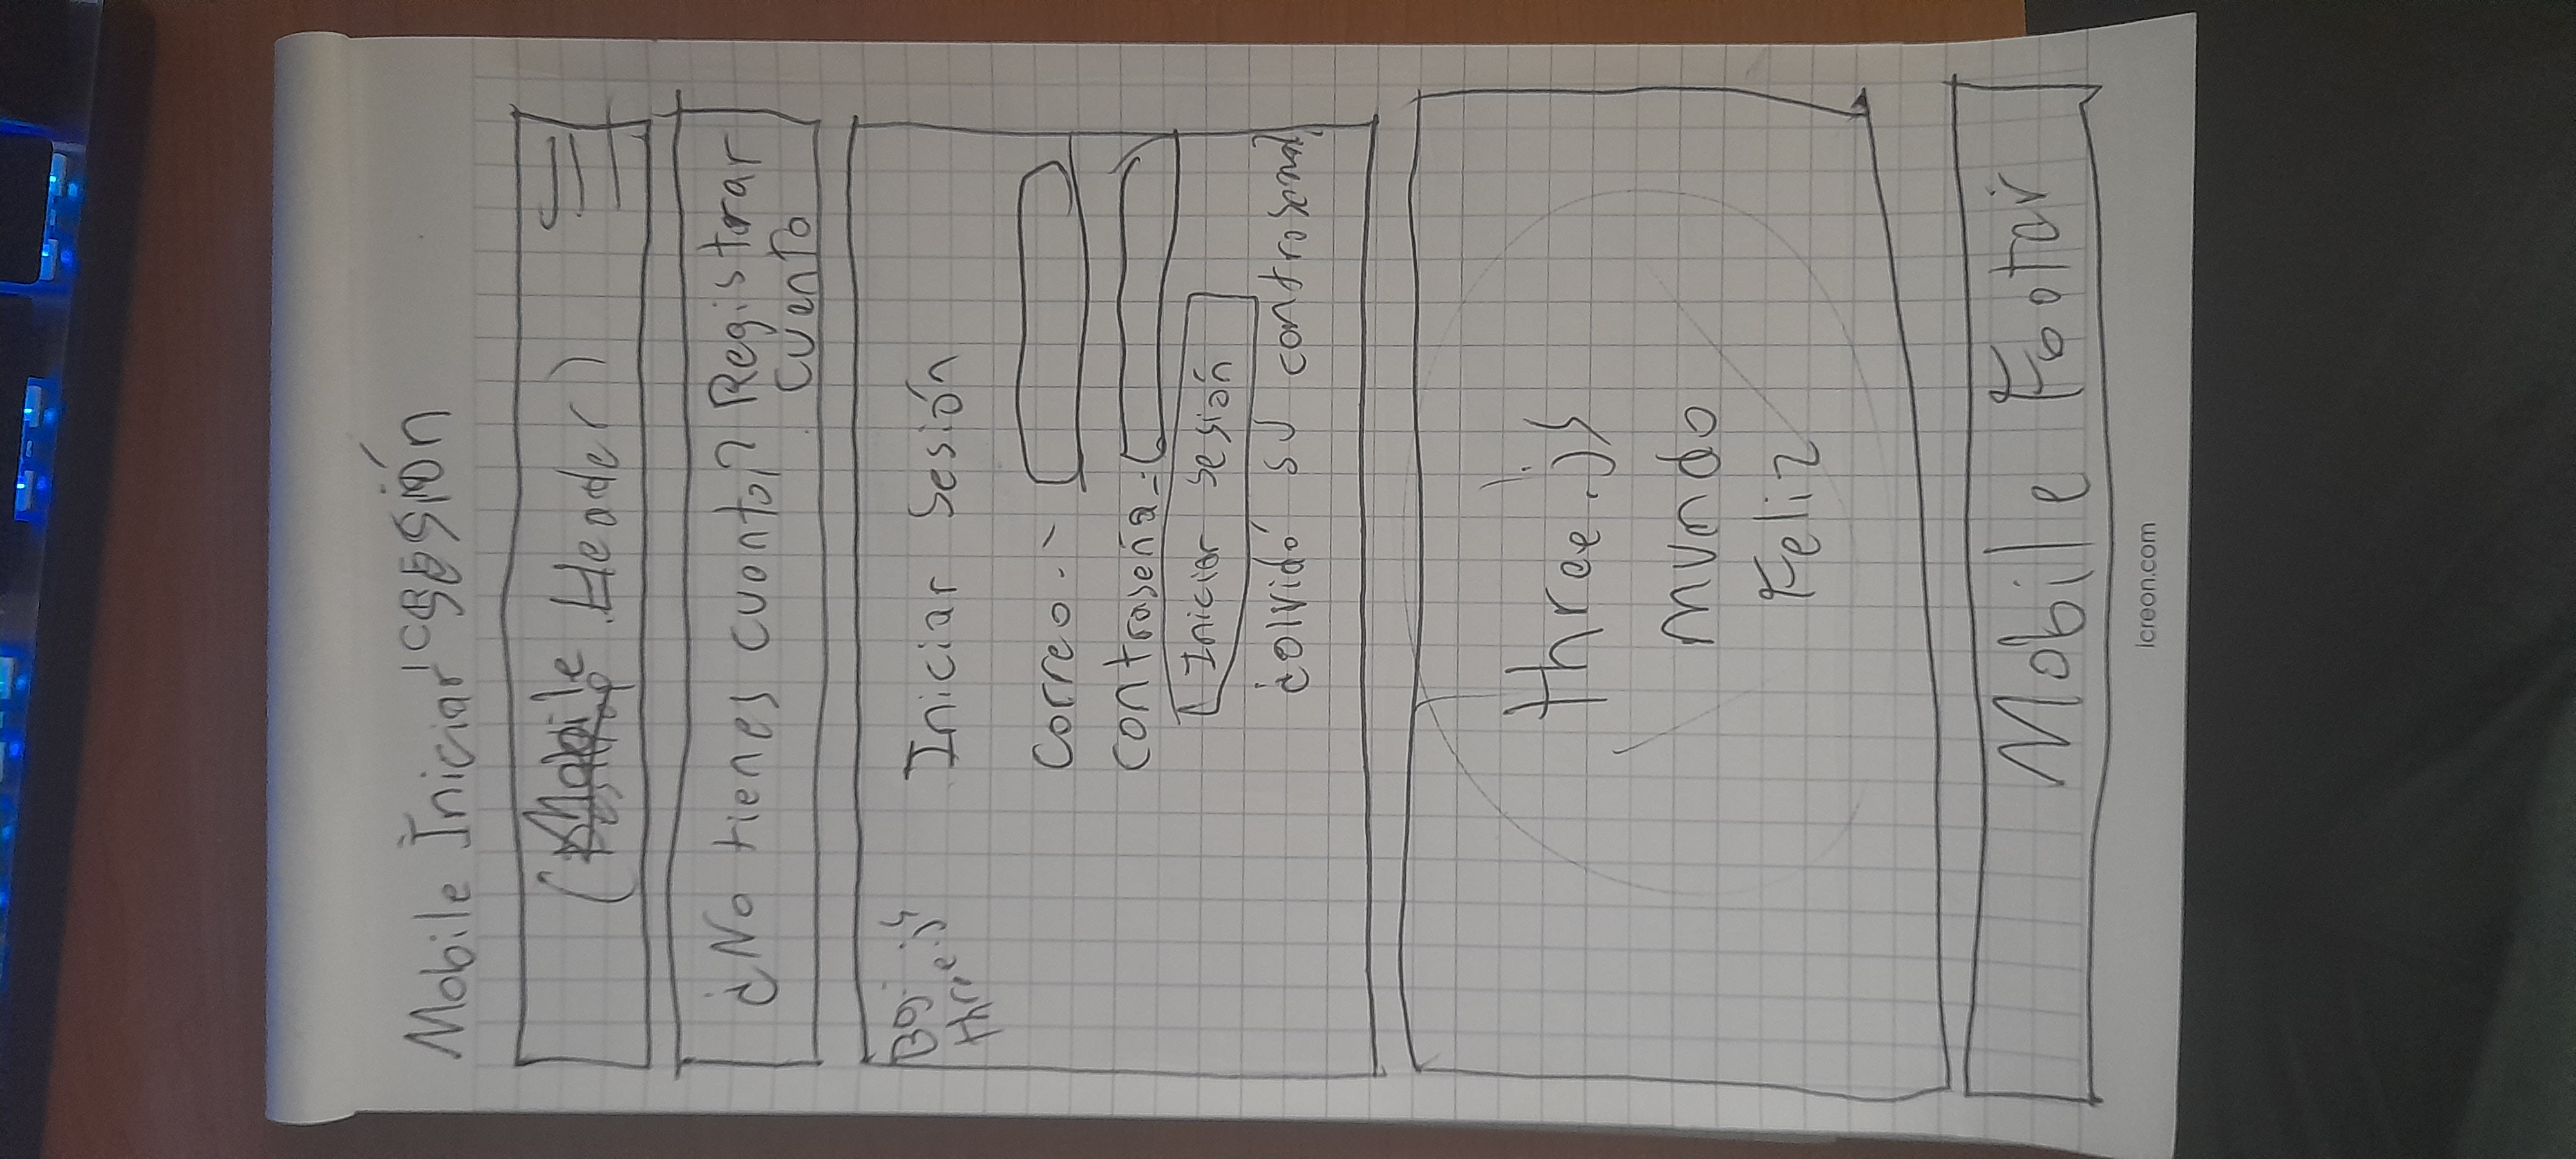 Mobile Iniciar SESIÓN
(Mobile Header)
¿No tienes cuenta? Registrar
cuenta
BG:
three.js
Iniciar Sesión
Correo:-
contraseña-:
Iniciar Sesión
¿olvidó su contraseña?
three.js
mundo
Feliz
Mobile Footer
icreon.com